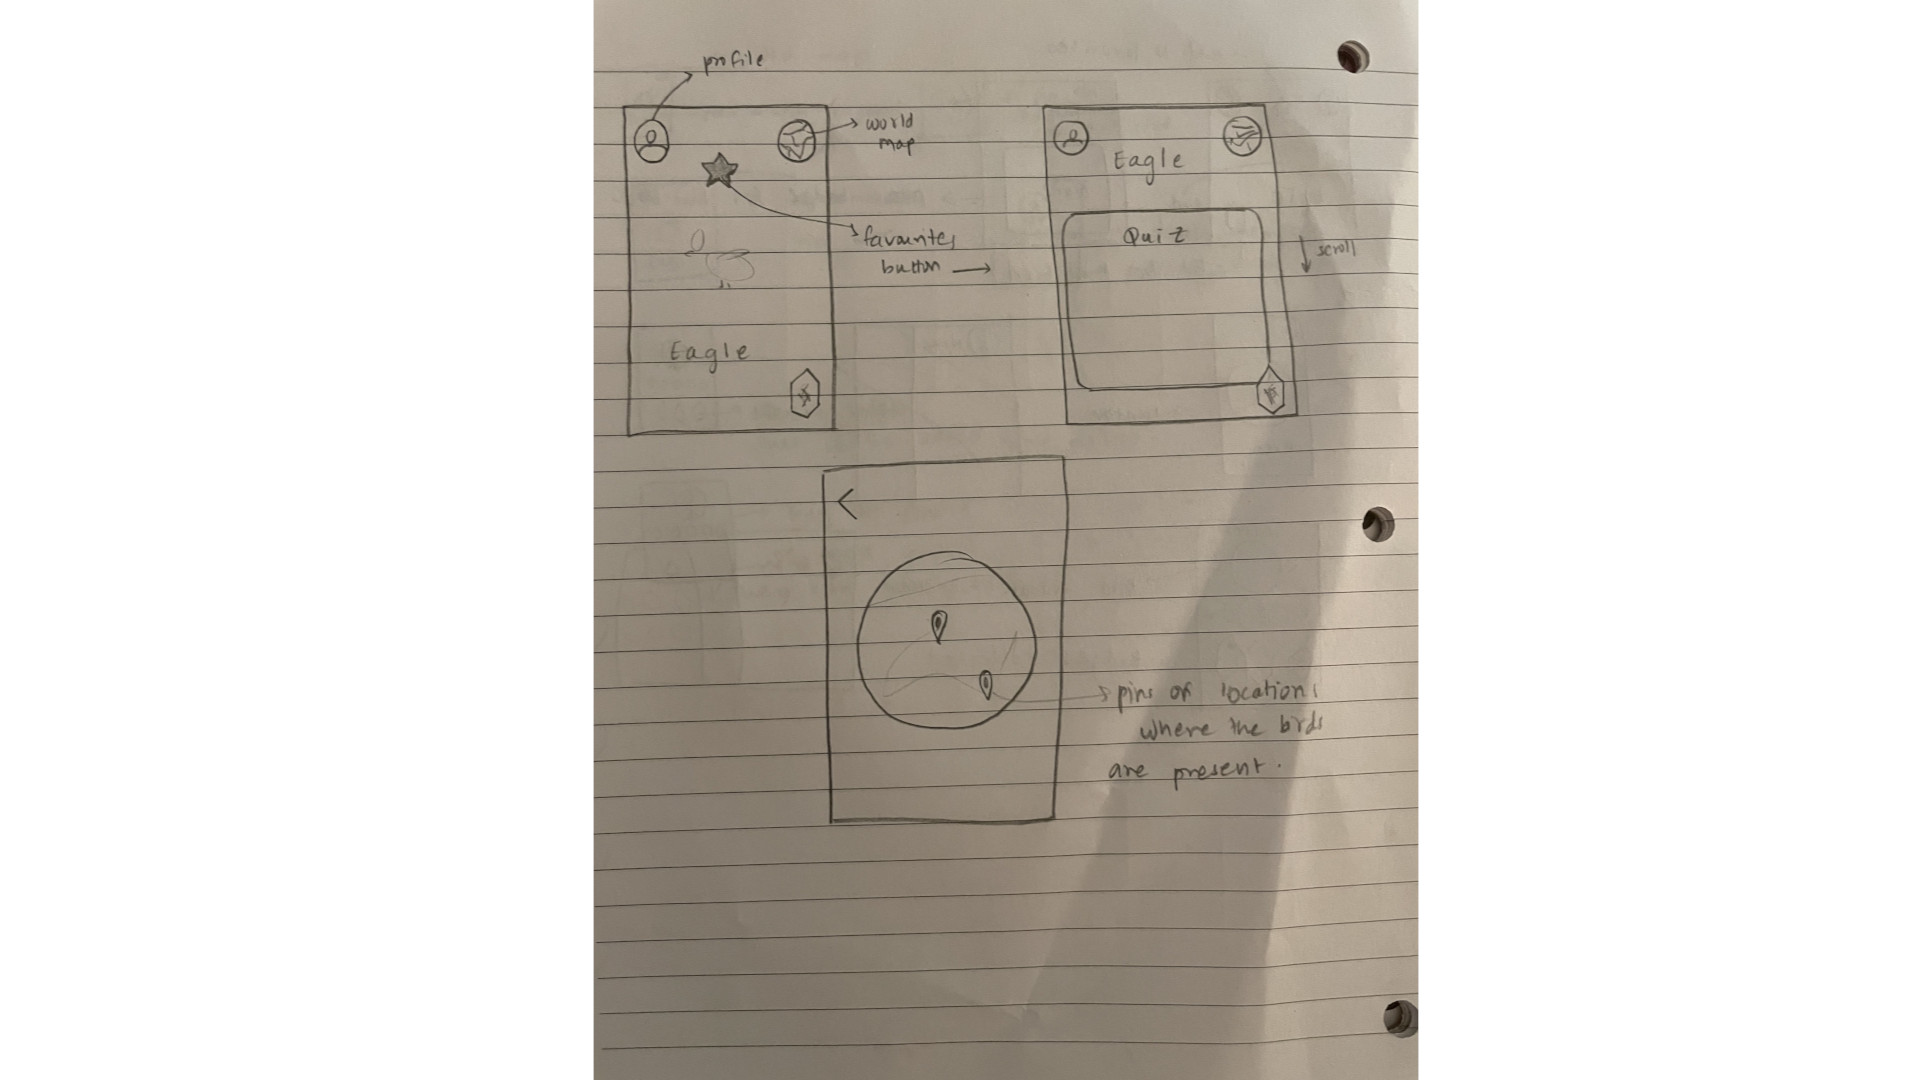 profile
world
map
favourites
button
Eagle
Eagle
Quiz
scroll
pins of locations
where the birds
are present.